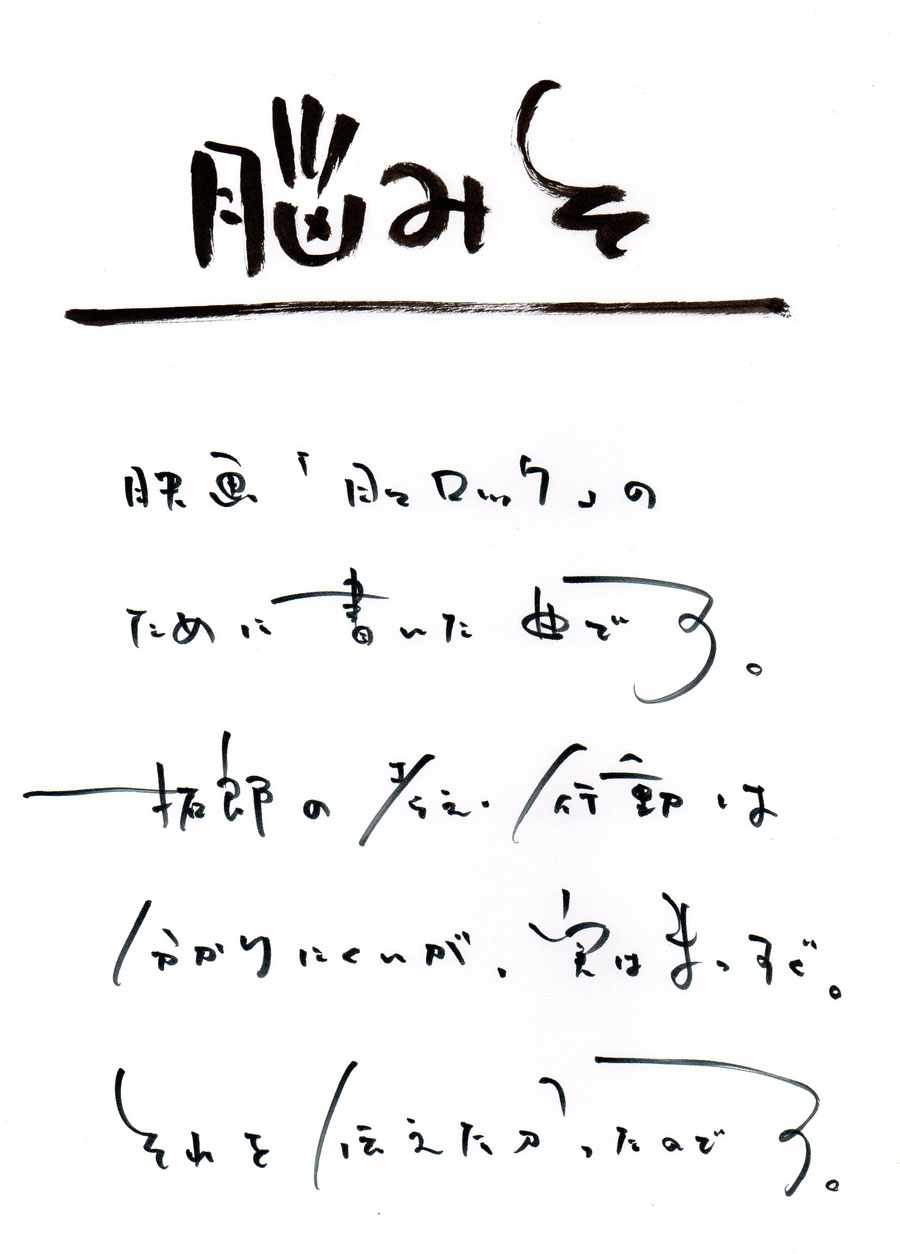 脳みそ
映画「日々ロック」の
ために書いた曲です。
拓郎の考え・行動は
分かりにくいが、実はまっすぐ。
それを伝えたかったのです。